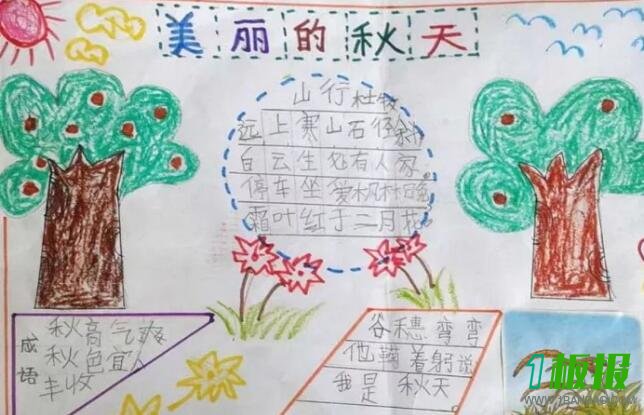 美丽的秋天
山行 杜牧
远上寒山石径斜
白云生处有人家
停车坐爱枫林晚
霜叶红于二月花。
成语
秋高气爽
秋色宜人
丰收
谷穗弯弯
他鞠着躬说
我是 秋天
1板报
WWW.1BANBAO.COM